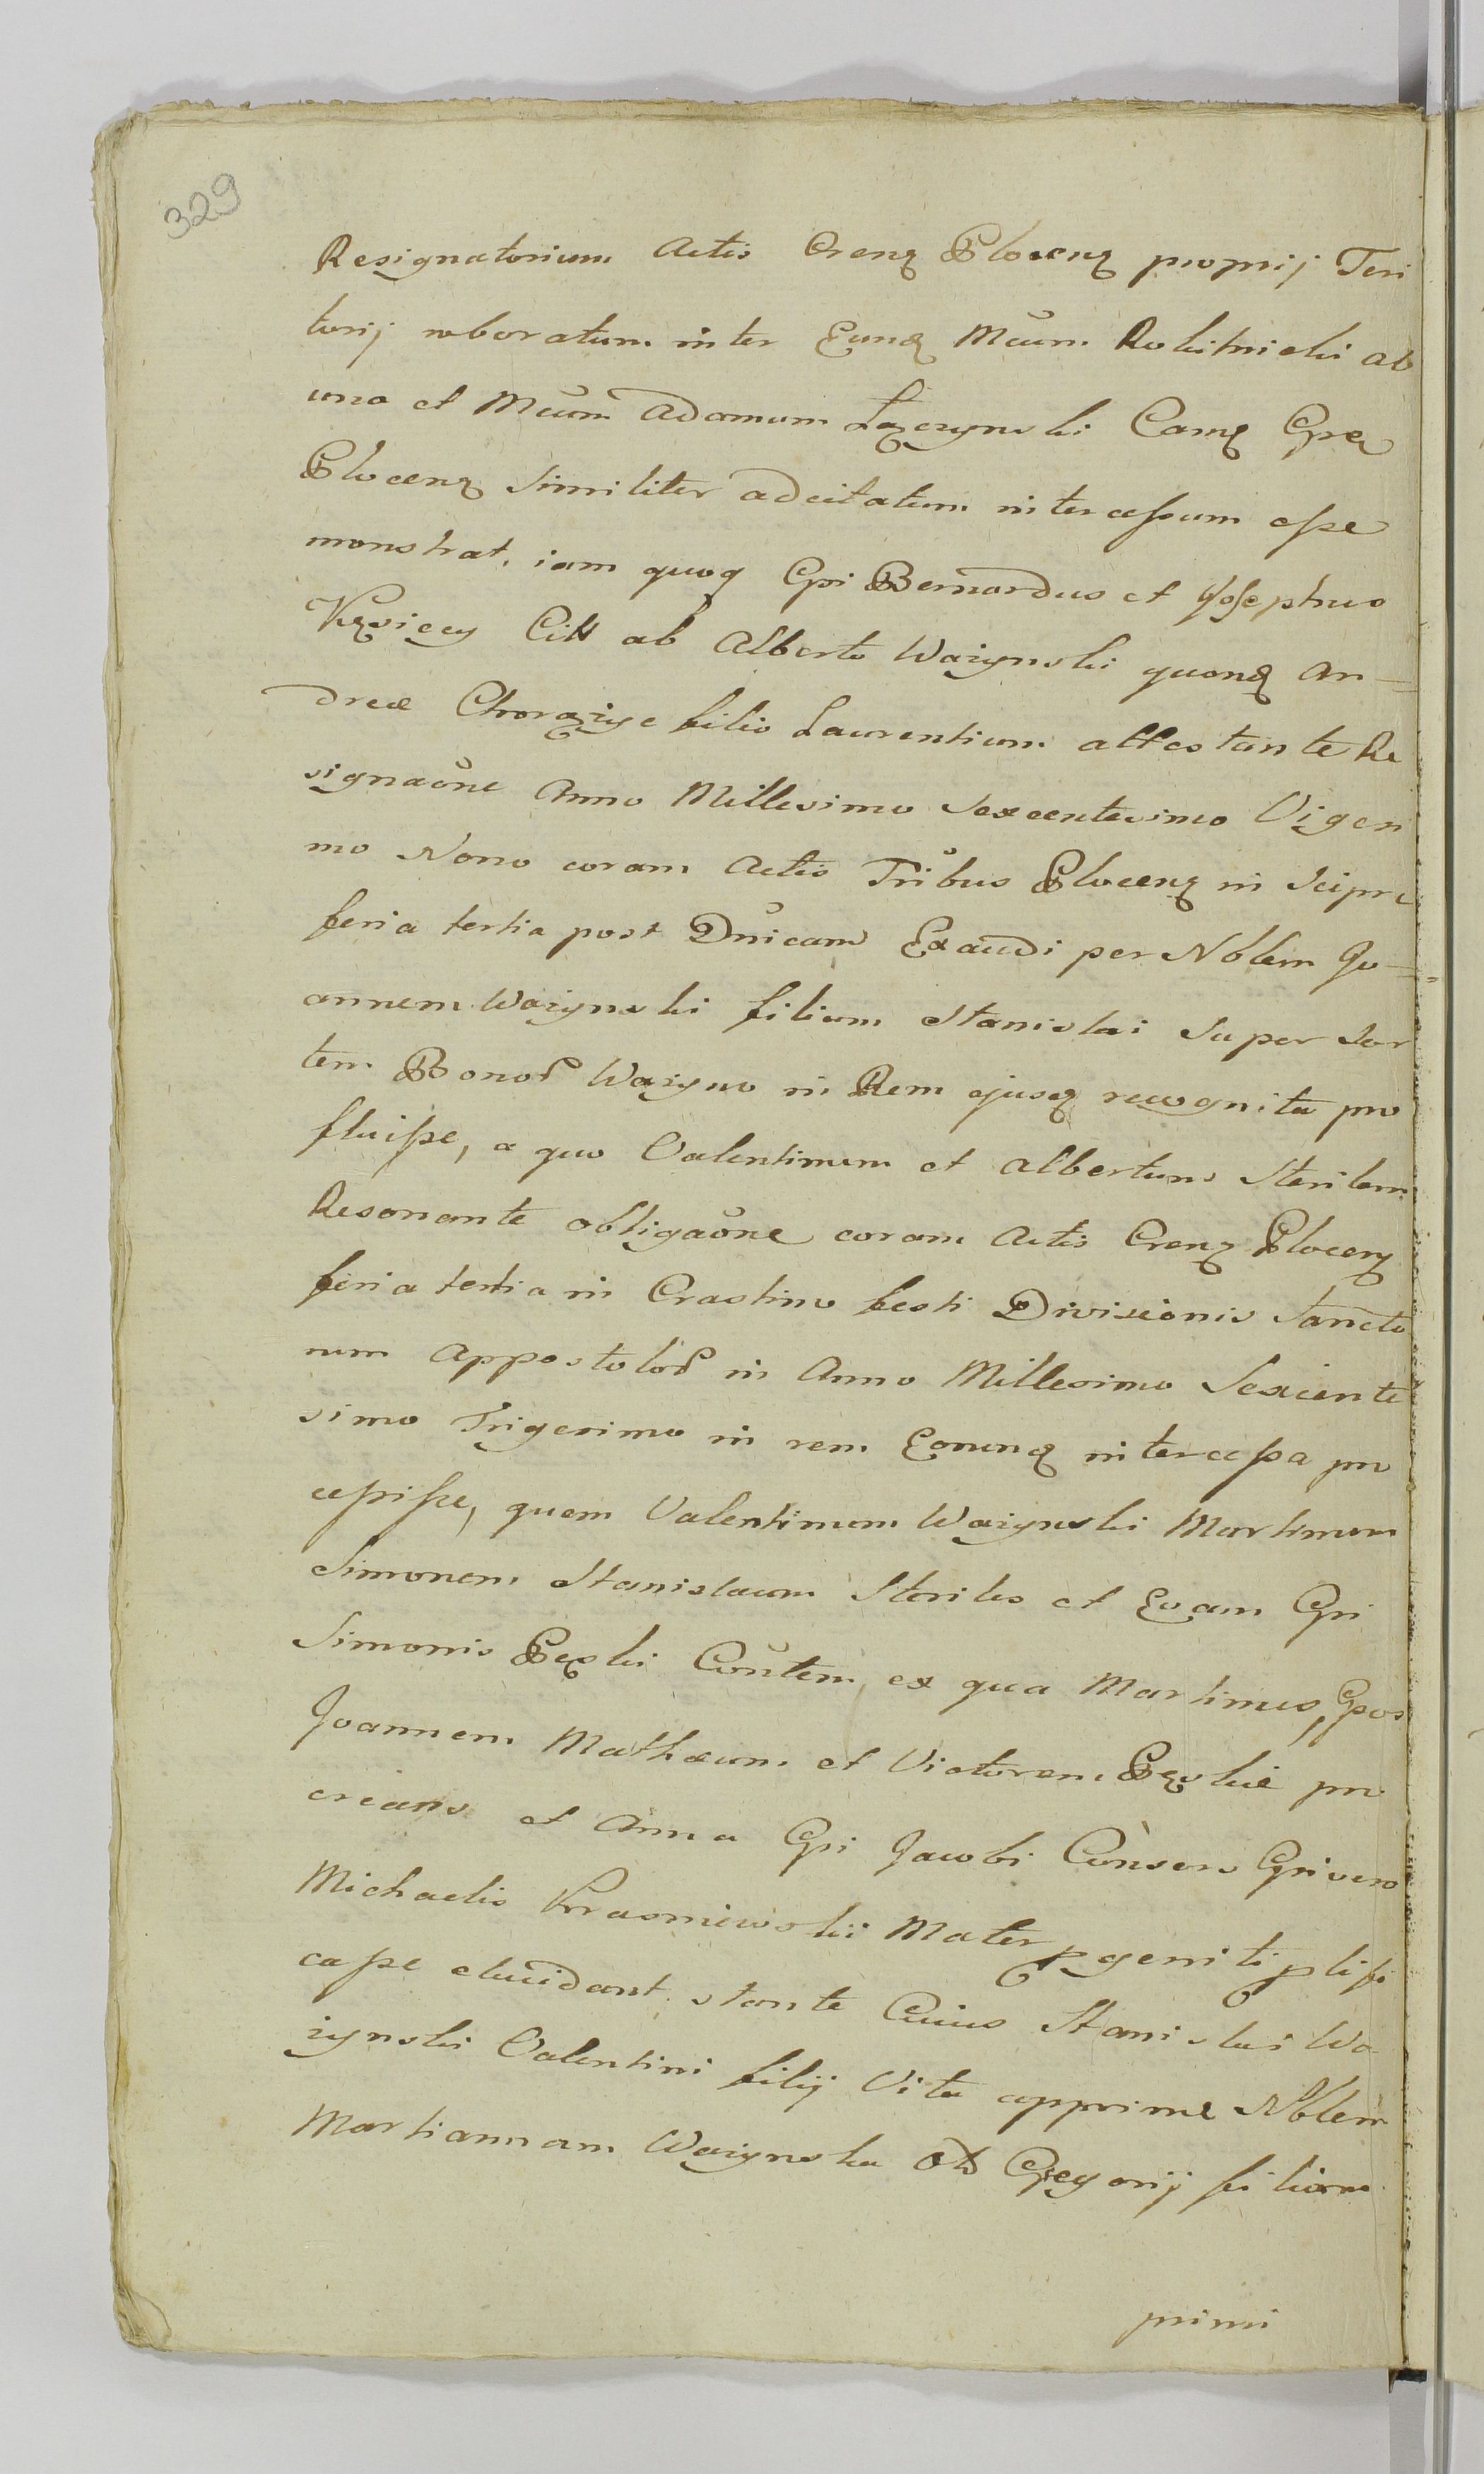 329
Resignatorium Actis Crenę Plocenę proprij Teri
torij roboratum inter Eundę Mcum Rokitnicki ab
uno et Mcum Adamum Lączynski Camę Gre
Plocenę Similiter adcitatum intercessum esse
monstrat, iam quoq Gsi Bernardus et Josephus
Kęsiccy Citt ab AlbertoWażynski quondę An=
dreæ Chorąży filio Laurentium attestante Re
signaone Anno Millesimo Sexcentesimo Vigen
mo Nono coram Actis Tribus Plocenę in Scipre
feria tertia post Dnicam Exaudi per Noblem Jo=
annem Ważynski filium Stanislai Super Sor
tem Bonor Ważyno in Rem ejusdę recognita pro
fluisse, a quo Valentinum et Albertum Sterilem
Resonante obligaone coram Actis Crenę Plocenę
feria tertia in Crastino festi Divisionis Sancto
rum Appostolor in Anno Millesimo Sexcente
simo Trigesimo in rem Eorundę intercessa pro
cessisse, quem Valentinum Ważynski Martinum
Simonem Stanislaum Steriles et Evam Gsi
Simonis Contem, ex qua Martinus Gsos
Joannem Mathæum et Victorem pro
creans et Anna Gsi Jacobi Consors Gsi vero
Michaelis Krasniewski Mater pgeniti plifi
casse elucidant. stante Cuius Stanislai Wa
żynski Valentini filij Vita apprime Noblem
Mariannam Ważynska Gregorij filiam
primi